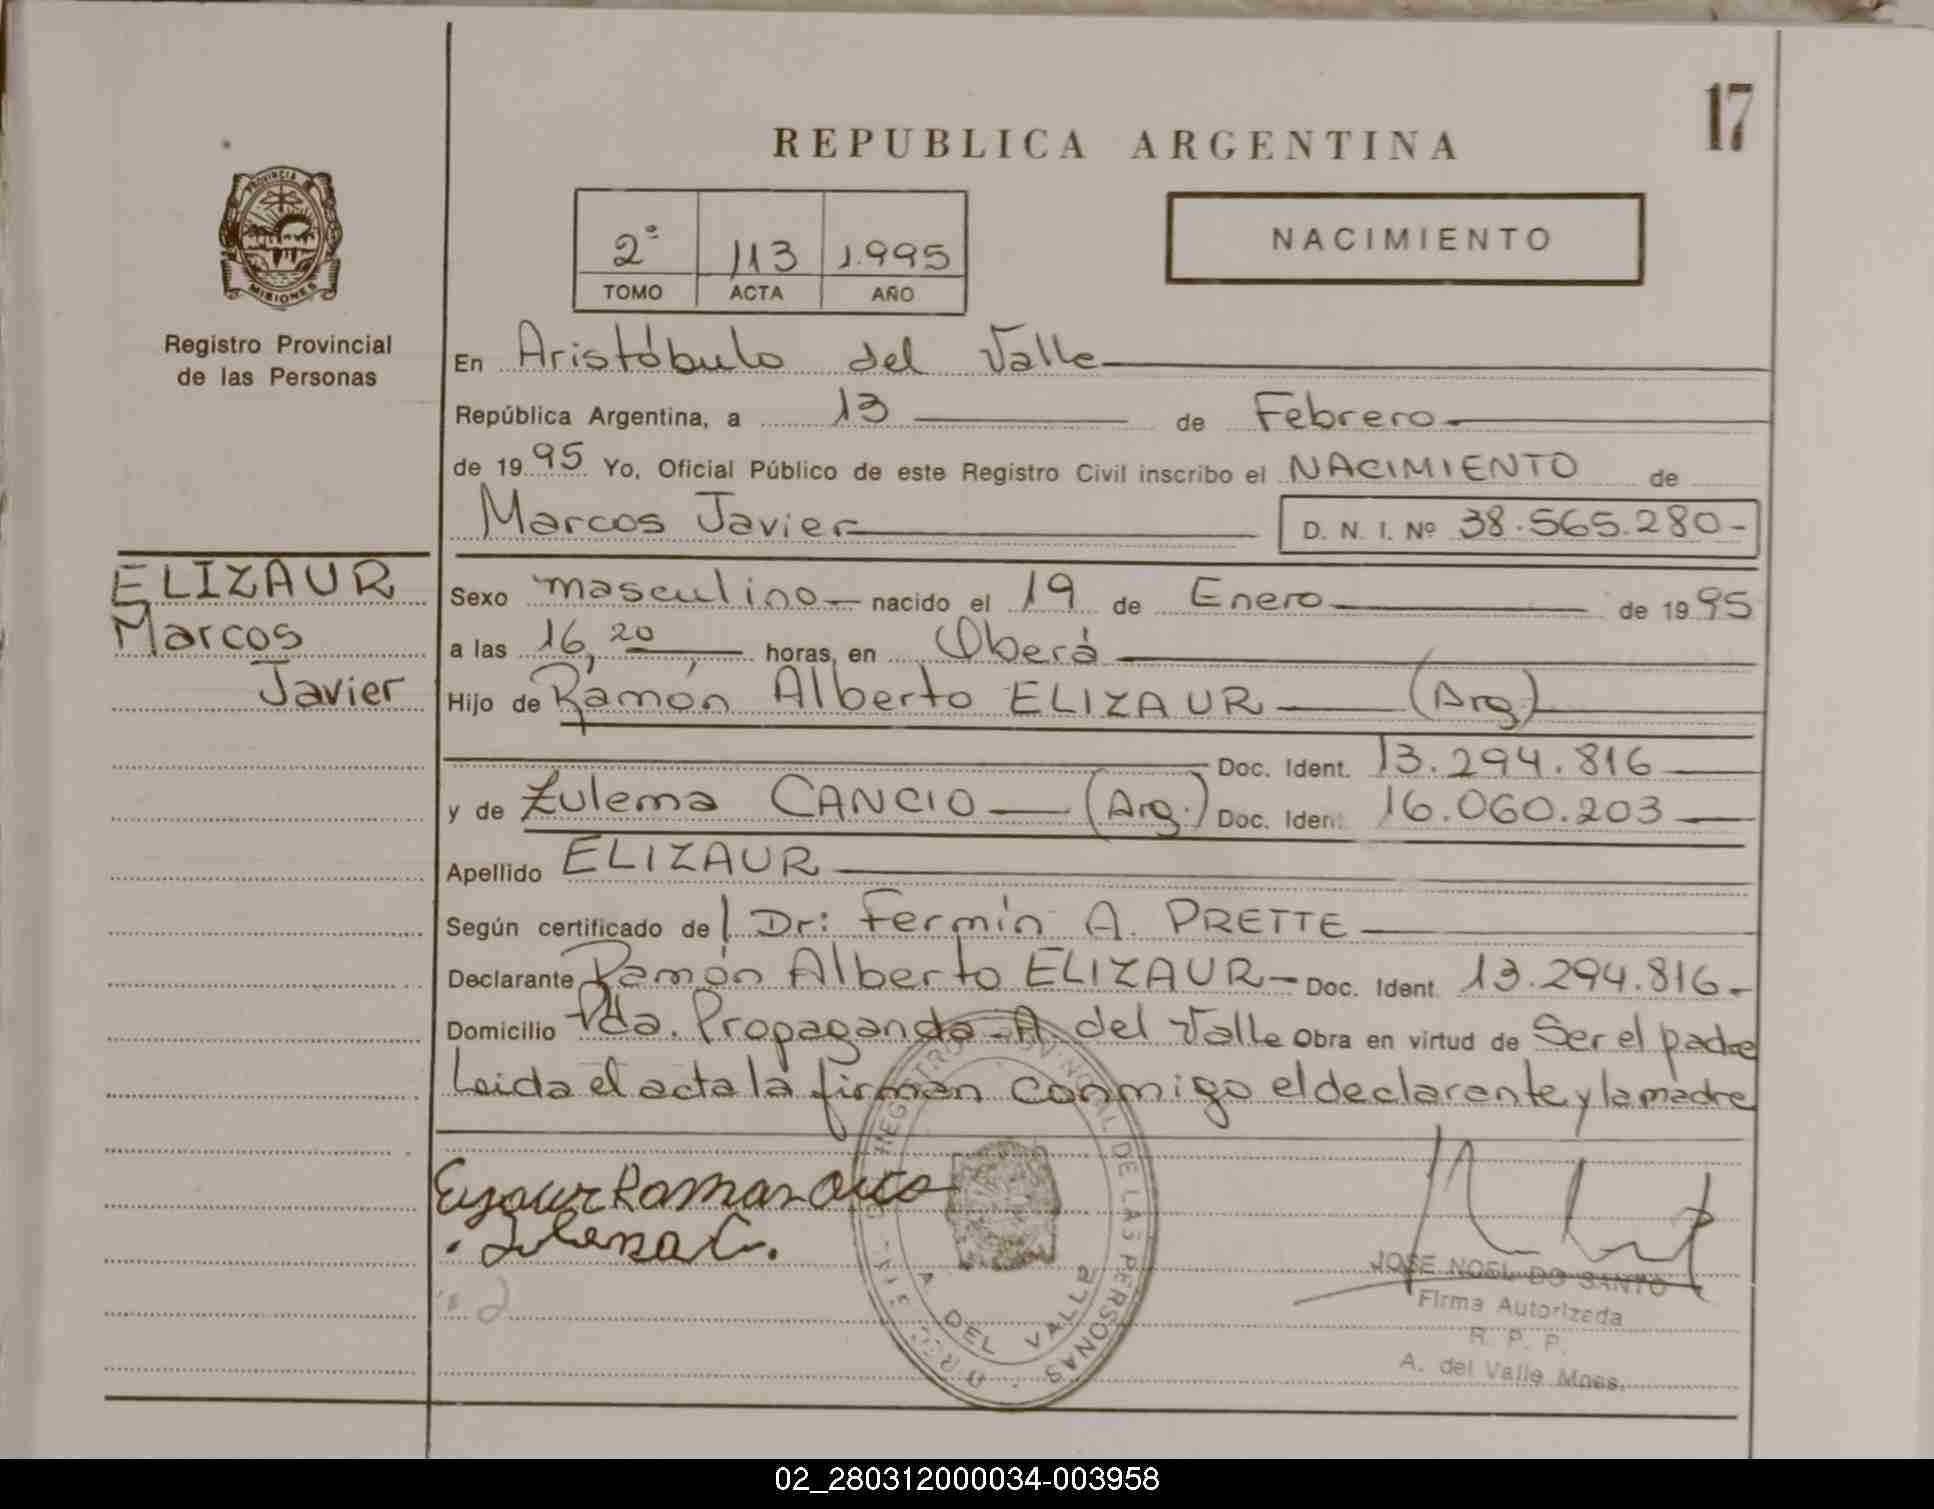 17
REPUBLICA ARGENTINA
PROVINCIA
MISIONES
Registro Provincial
de las Personas
2º 113 1.995
TOMO ACTA AÑO
NACIMIENTO
En Aristóbulo del Valle
República Argentina, a 13 de Febrero
de 1995 Yo, Oficial Público de este Registro Civil inscribo el NACIMIENTO de
Marcos Javier D. N. I. Nº 38.565.280-
ELIZAUR
Marcos
Javier
Sexo masculino nacido el 19 de Enero de 1995
a las 16,20 horas, en Oberá
Hijo de Ramón Alberto ELIZAUR (Arg)
Doc. Ident. 13.294.816
y de Zulema CANCIO (Arg.) Doc. Iden. 16.060.203
Apellido ELIZAUR
Según certificado de l Dr: Fermín A. PRETTE
Declarante Ramón Alberto ELIZAUR- Doc. Ident. 13.294.816-
Domicilio Pda. Propaganda - A. del Valle Obra en virtud de Ser el padre
Leida el acta la firman conmigo el declarante y la madre
REGISTRO PROVINCIAL DE LAS PERSONAS
A. DEL VALLE
JOSE NOEL DO SANTO
Firma Autorizada
R. P. P.
A. del Valle Mnes.
02_280312000034-003958